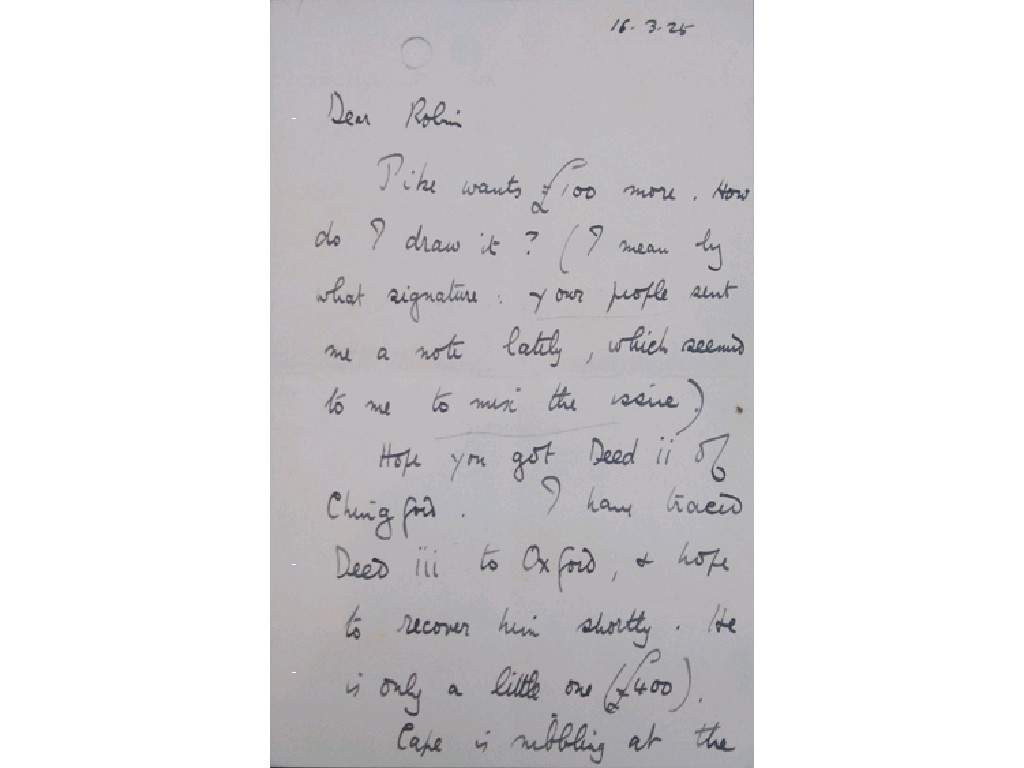 16. 3. 25
Dear Robin
Pike wants £100 more. How
do I draw it? (I mean by
what signature: your people sent
me a note lately, which seemed
to me to mix the issue)
Hope you got Deed ii of
Chingford. I have traced
Deed iii to Oxford, & hope
to recover him shortly. He
is only a little one (£400).
Cape is nibbling at the